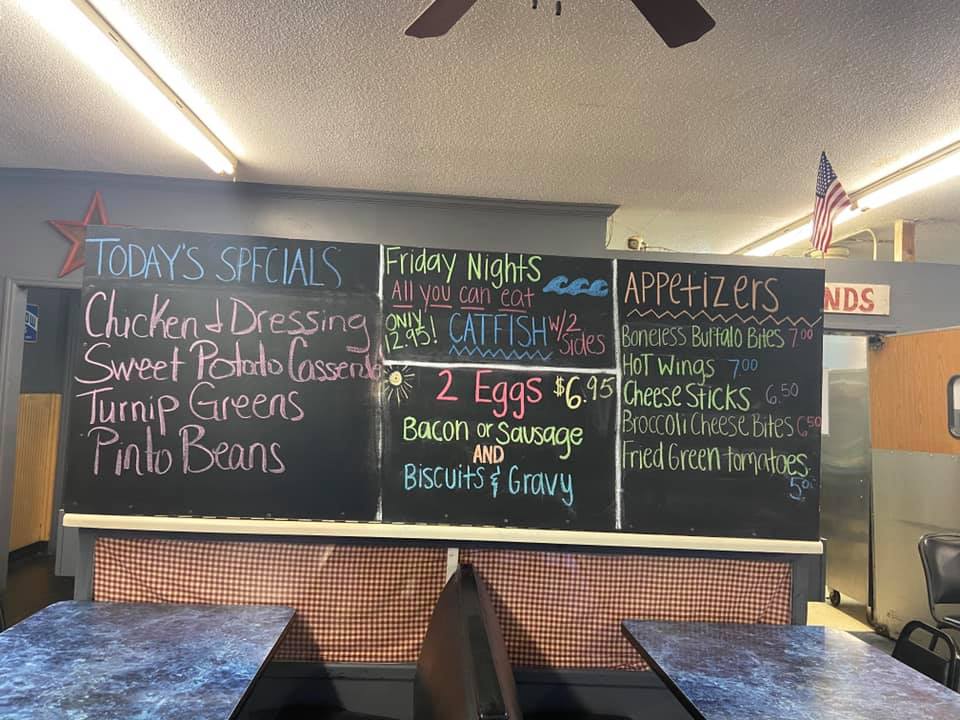 TODAY'S SPECIALS
Chicken & Dressing
Sweet Potato Casserole
Turnip Greens
Pinto Beans
Friday Nights
All you can eat
ONLY
12.95!
CATFISH
w/2
sides
2 Eggs $6.95
Bacon or Sausage
AND
Biscuits & Gravy
APPEtizERS
Boneless Buffalo Bites 7.00
HOT WINGS 7.00
CHEESE STICKS 6.50
Broccoli Cheese Bites 6.50
Fried Green tomatoes
5.00
NDS